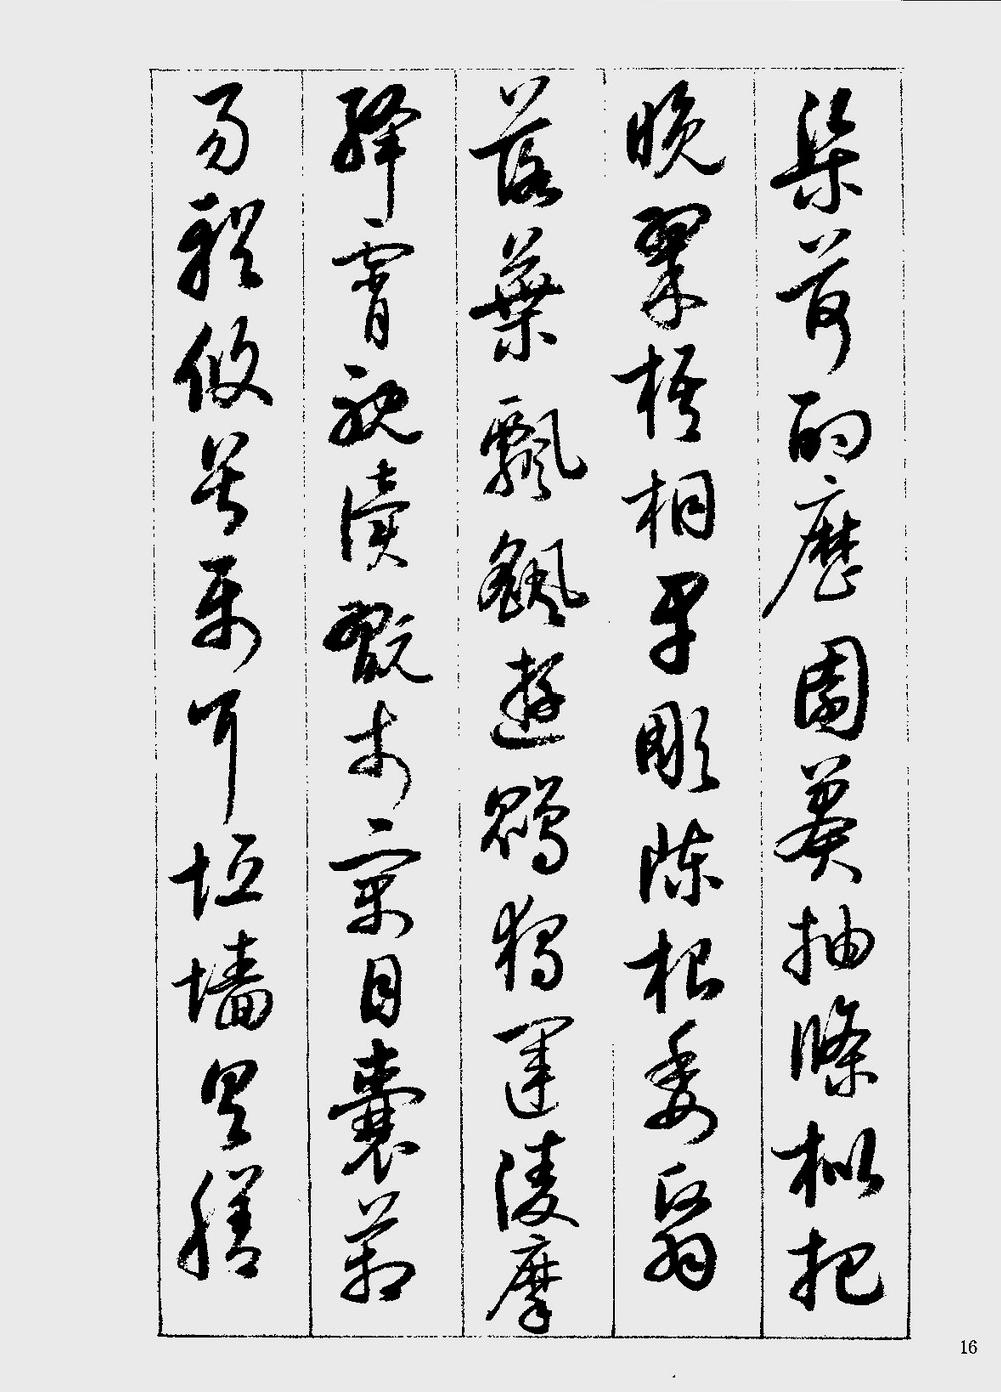 渠荷的歷園莽抽條枇杷
晚翠梧桐早彫陳根委翳
落葉飄颻遊鵾獨運淩摩
絳霄耽讀翫市寓目囊箱
易輶攸畏屬耳垣墻具膳
16